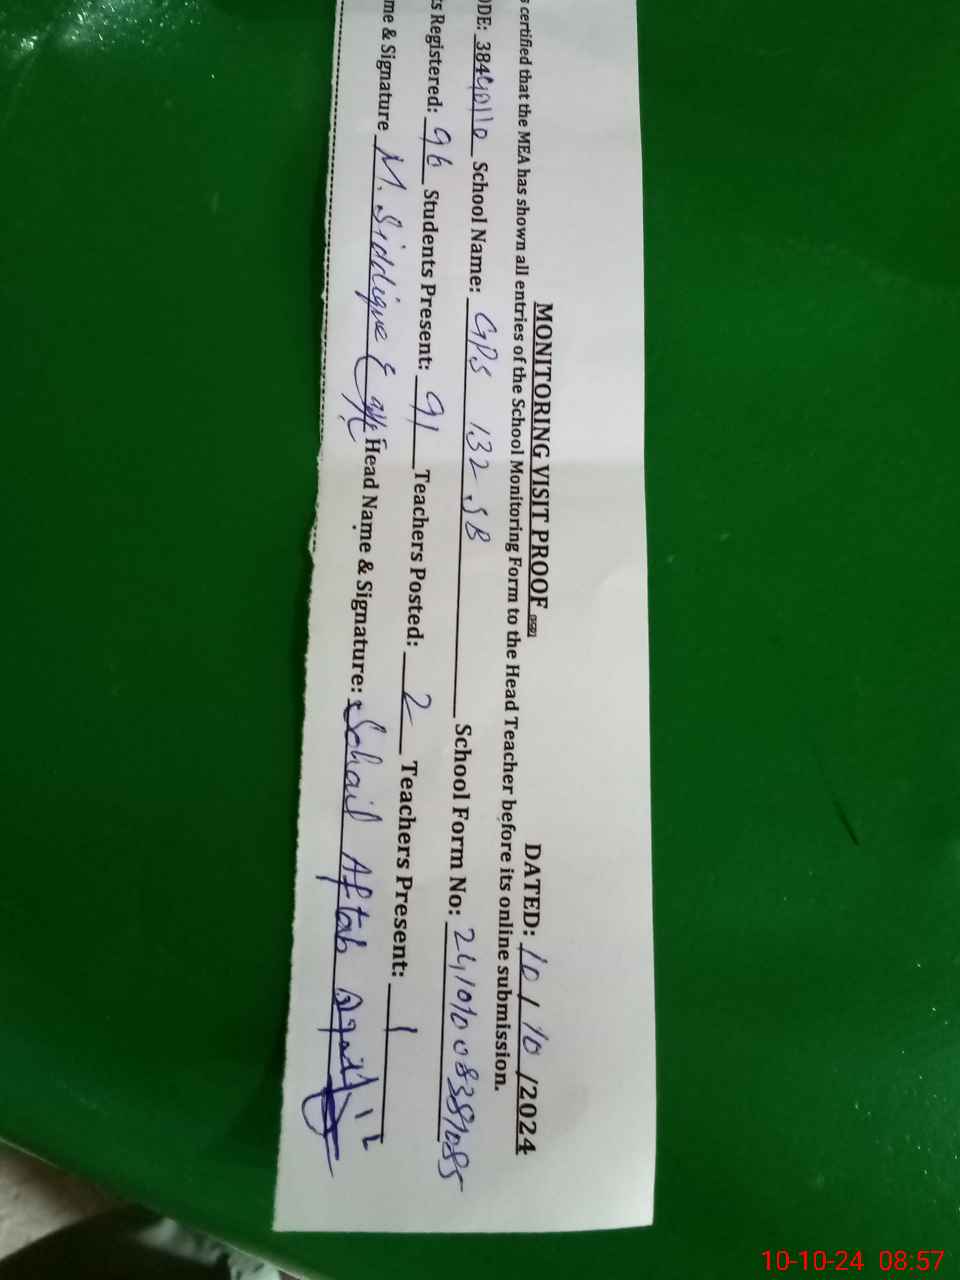 MONITORING VISIT PROOF DATED: 10/10/2024
certified that the MEA has shown all entries of the School Monitoring Form to the Head Teacher before its online submission.
ODE: 38440110 School Name: GPS 132 SB School Form No:
ts Registered: 96 Students Present: 91 Teachers Posted: 2 Teachers Present: 1
me & Signature M. Siddique Head Name & Signature: Sohail Aftab
10-10-24 08:57